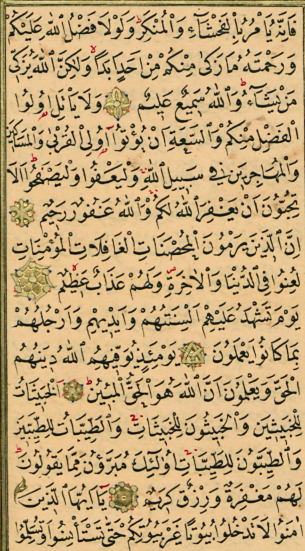 فَإِنَّهُ يَأْمُرُ بِالْفَحْشَاءِ وَالْمُنْكَرِ وَلَوْلَا فَضْلُ اللهِ عَلَيْكُمْ
وَرَحْمَتُهُ مَا زَكَى مِنْكُمْ مِنْ اَحَدٍ اَبَدًا وَلَكِنَّ اللهَ يُزَكِّي
مَنْ يَشَاءُ وَاللهُ سَمِيعٌ عَلِيمٌ وَلَا يَأْتَلِ اُولُوا
الْفَضْلِ مِنْكُمْ وَالسَّعَةِ اَنْ يُؤْتُوا اُولِى الْقُرْبَى وَالْمَسَاكِينَ
وَالْمُهَاجِرِينَ فِي سَبِيلِ اللهِ وَلْيَعْفُوا وَلْيَصْفَحُوا اَلَا
تُحِبُّونَ اَنْ يَغْفِرَ اللهُ لَكُمْ وَاللهُ غَفُورٌ رَحِيمٌ
اِنَّ الَّذِينَ يَرْمُونَ الْمُحْصَنَاتِ الْغَافِلَاتِ الْمُؤْمِنَاتِ
لُعِنُوا فِي الدُّنْيَا وَالْاٰخِرَةِ وَلَهُمْ عَذَابٌ عَظِيمٌ
يَوْمَ تَشْهَدُ عَلَيْهِمْ اَلْسِنَتُهُمْ وَاَيْدِيهِمْ وَاَرْجُلُهُمْ
بِمَا كَانُوا يَعْمَلُونَ يَوْمَئِذٍ يُوَفِّيهِمُ اللهُ دِينَهُمُ
الْحَقَّ وَيَعْلَمُونَ اَنَّ اللهَ هُوَ الْحَقُّ الْمُبِينُ اَلْخَبِيثَاتُ
لِلْخَبِيثِينَ وَالْخَبِيثُونَ لِلْخَبِيثَاتِ وَالطَّيِّبَاتُ لِلطَّيِّبِينَ
وَالطَّيِّبُونَ لِلطَّيِّبَاتِ اُولَئِكَ مُبَرَّؤُنَ مِمَّا يَقُولُونَ
لَهُمْ مَغْفِرَةٌ وَرِزْقٌ كَرِيمٌ يَا اَيُّهَا الَّذِينَ
اٰمَنُوا لَا تَدْخُلُوا بُيُوتًا غَيْرَ بُيُوتِكُمْ حَتَّى تَسْتَأْنِسُوا وَتُسَلِّمُوا